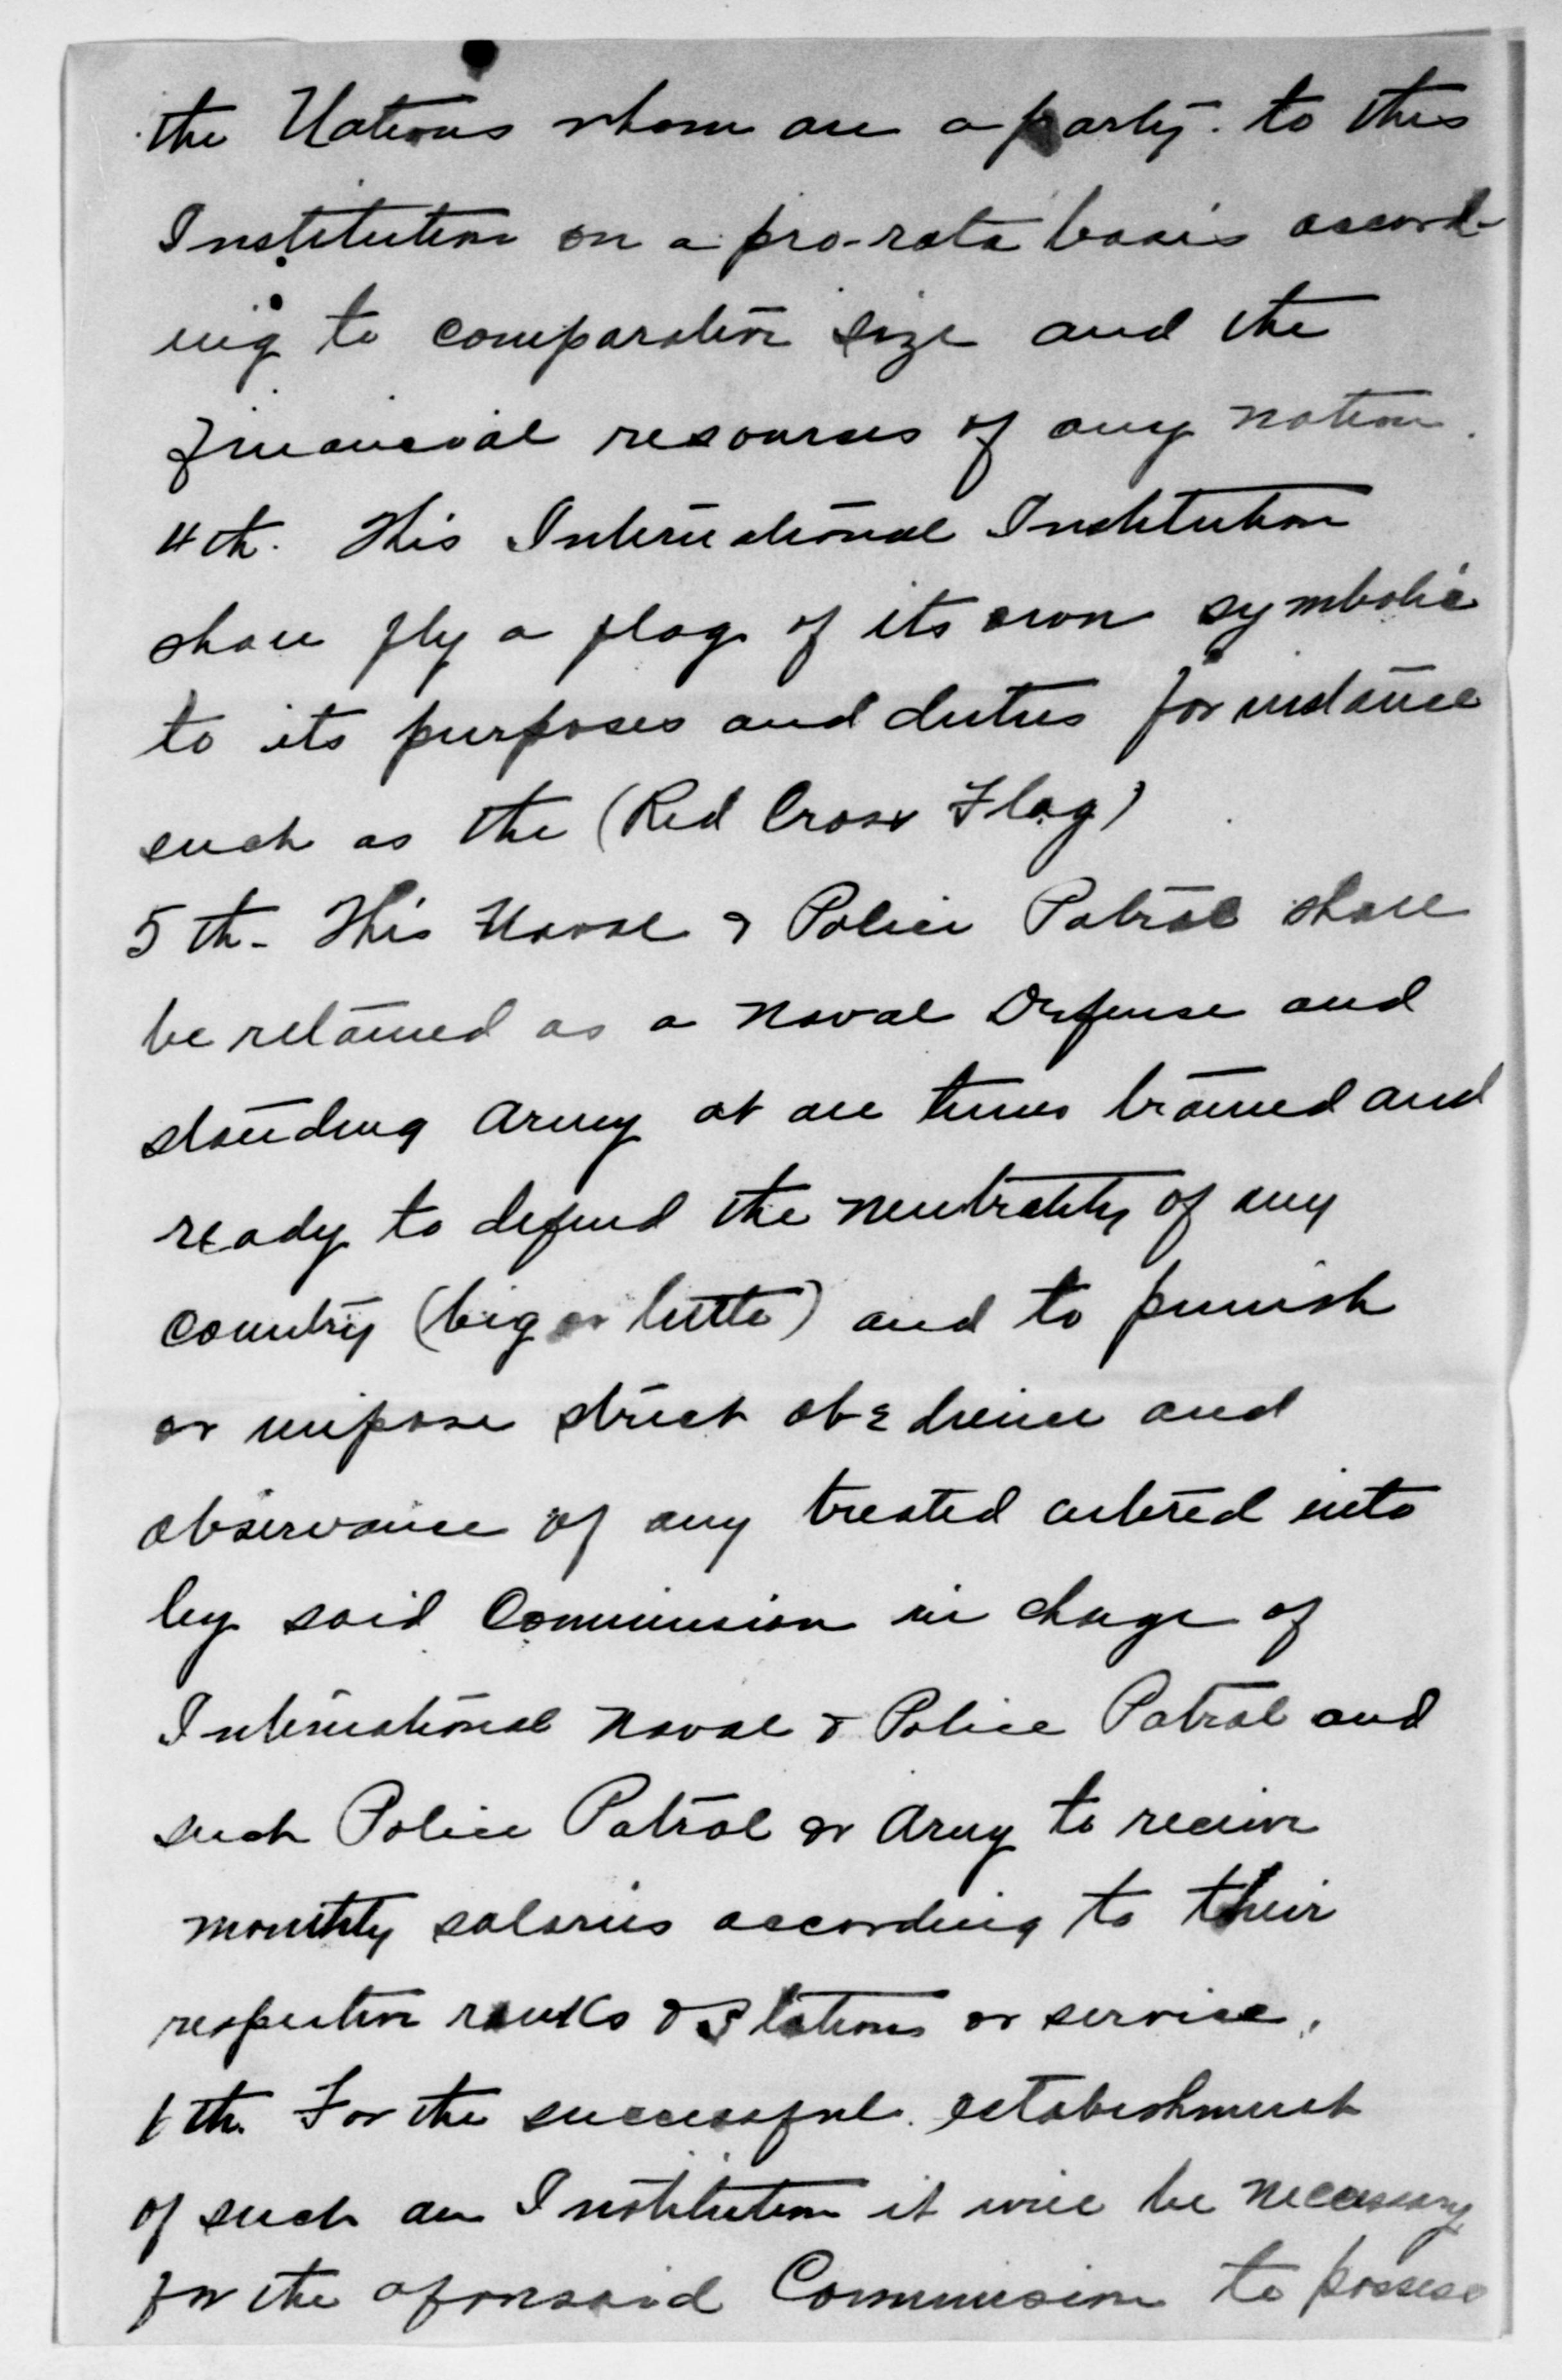 the Nations whom are a party. to this
Institution on a pro-rata basis accord-
ing to comparative size and the
financial resources of any nation.
4th. This International Institution
shall fly a flag of its own symbolic
to its purposes and duties for instance
such as the (Red Cross Flag)
5th- This Naval & Police Patrol shall
be retained as a Naval Defense and
standing army at all times trained and
ready to defend the neutrality of any
country (big or little) and to punish
or impose strict obedience and
observance of any treated entered into
by said Commission in charge of
International Naval & Police Patrol and
such Police Patrol or Army to receive
monthly salaries according to their
respective ranks & Stations or service.
th. For the successful establishment
of such an Institution it will be necessary
for the aforesaid Commission to possess